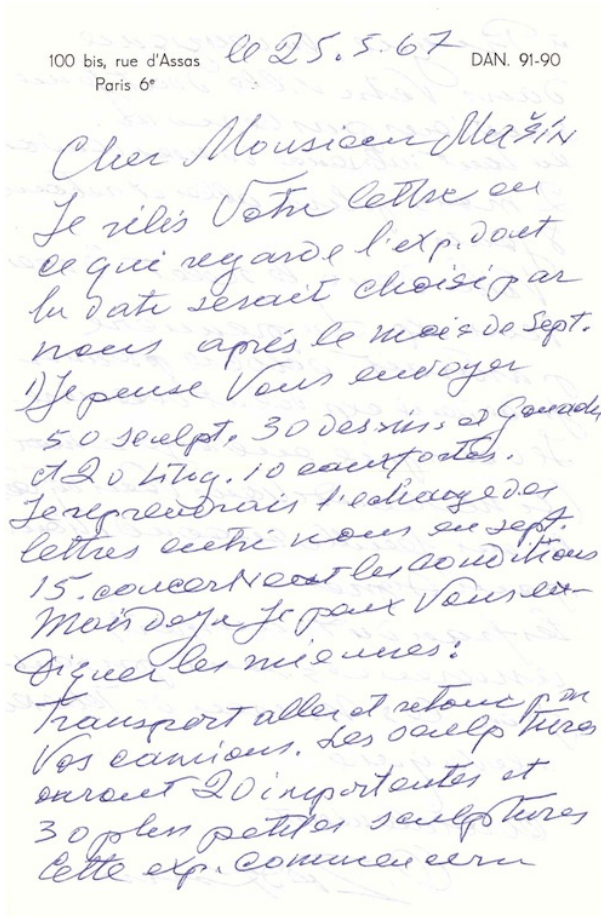 100 bis, rue d'Assas
Paris 6e
le 25.5.67
DAN. 91-90
Cher Monsieur Mešin
Je rélis Votre lettre en
ce qui regarde l'exp. dont
la date serait choisi par
nous après le mois de Sept.
1) Je pense Vous envoyer
50 sculpt. 30 dessins et Gouaches
et 20 Litog. 10 eauxfortes.
Je reprendrais l'echange des
lettres entre nous en sept.
15. concernent les conditions
Mais deja je peux Vous in-
diquer les miennes:
Transport aller et retour par
Vos camions. Les sculptures
auront 20 importantes et
30 plus petites sculptures
Cette exp. commencera